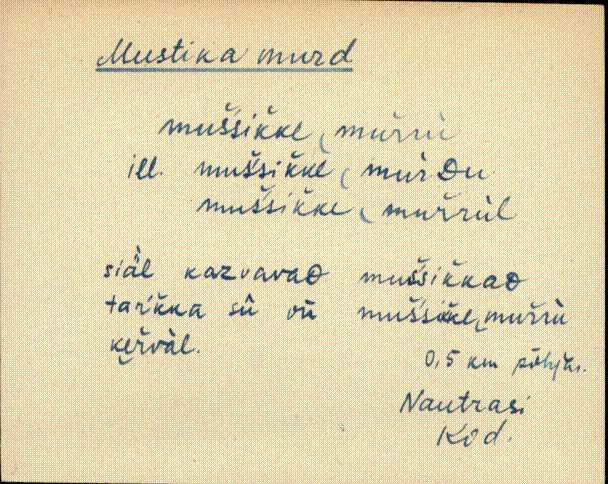 Mustika murd
mušsikke murru
ill. mušsikke murDu
mušsikke murrul
siäl kazvavaD mušsikkaD
tarikka sù où mušsikke murru
kerväl.
0,5 km põhj.
Nautrasi
Kod.